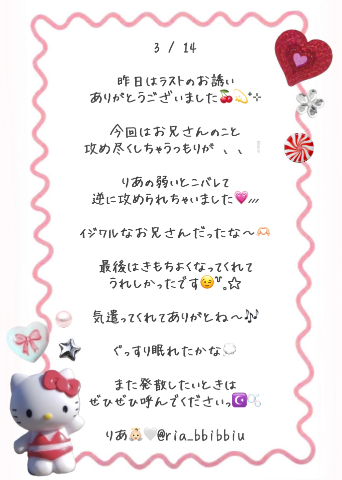 3 / 14
昨日はラストのお誘い
ありがとうございました🍒💫⁺⊹
今回はお兄さんのこと
攻め尽くしちゃうつもりが 、、
りあの弱いとこバレて
逆に攻められちゃいました💗𓈒𓈒𓈒
イジワルなお兄さんだったな〜🫶🏻
最後はきもちよくなってくれて
うれしかったです😉꙳。☆
気遣ってくれてありがとね〜🎶
ぐっすり眠れたかな💭
また発散したいときは
ぜひぜひ呼んでくださいっ☪️🫧
りあ👶🏻🤍@ria_bbibbiu